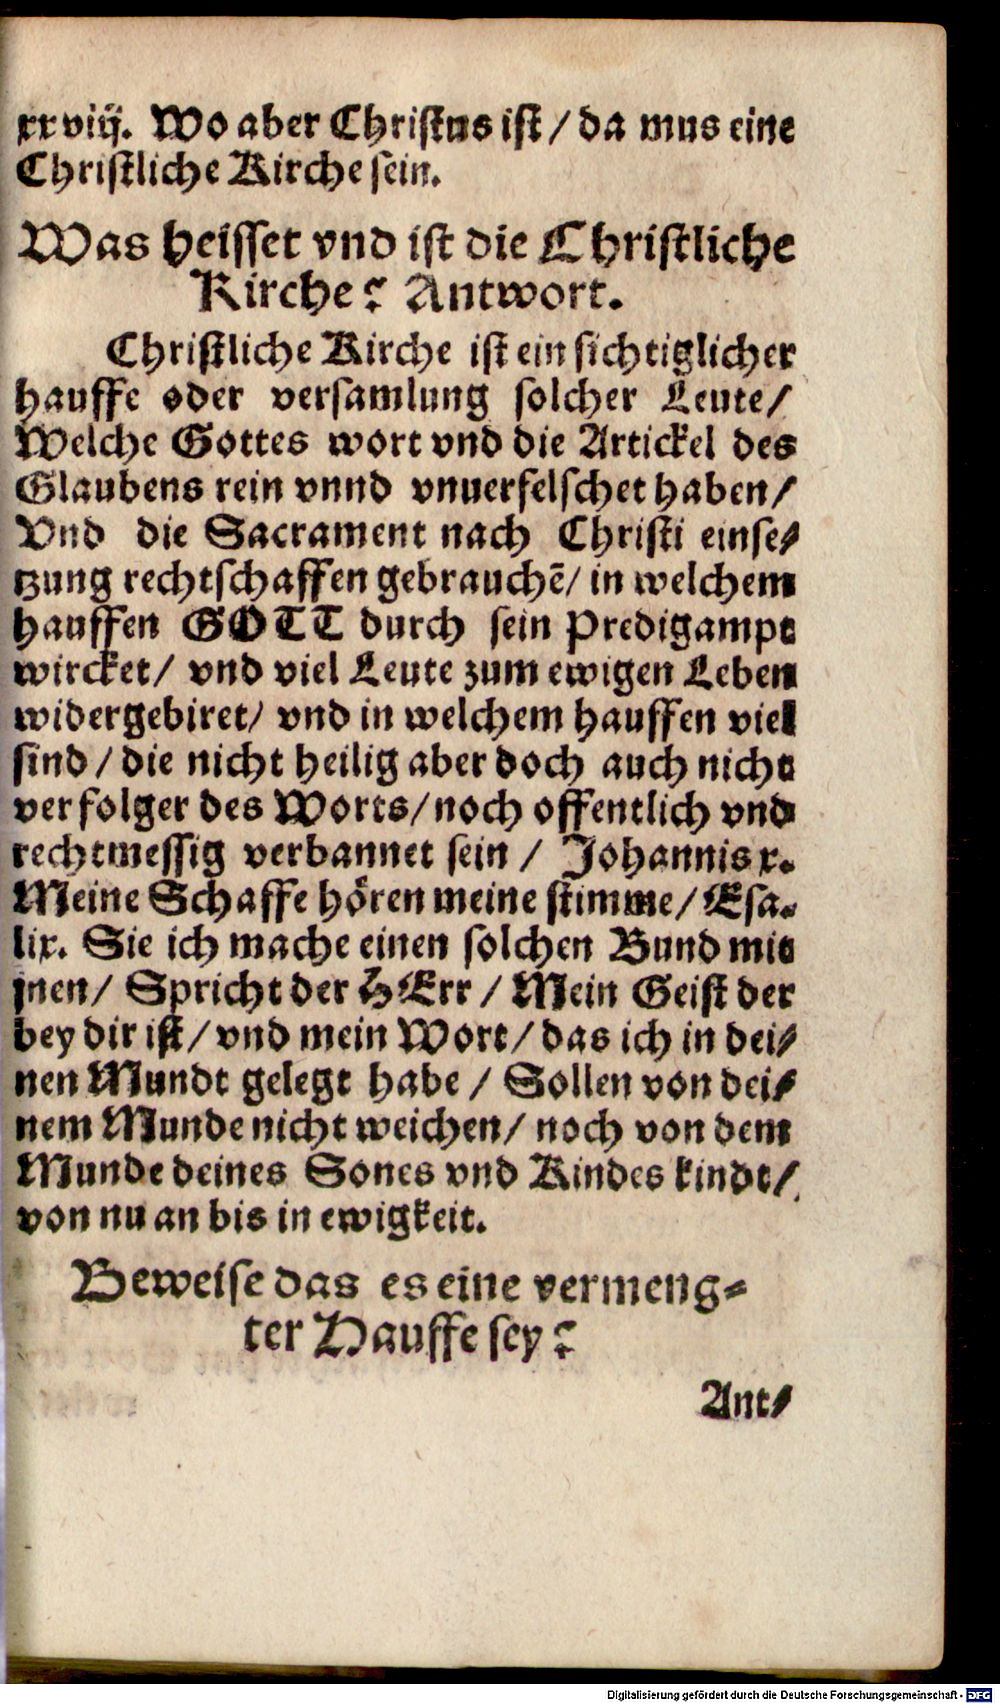 xxviij. Wo aber Christus ist / da mus eine
Christliche Kirche sein.
Was heisset vnd ist die Christliche
Kirche? Antwort.
Christliche Kirche ist ein sichtiglicher
hauffe oder versamlung solcher Leute /
Welche Gottes wort vnd die Artickel des
Glaubens rein vnnd vnuerfelschet haben /
Vnd die Sacrament nach Christi einse-
tzung rechtschaffen gebrauchē / in welchem
hauffen GOTT durch sein Predigampt
wircket / vnd viel Leute zum ewigen Leben
widergebiret / vnd in welchem hauffen viel
sind / die nicht heilig aber doch auch nicht
verfolger des Worts / noch offentlich vnd
rechtmessig verbannet sein / Johannis x.
Meine Schaffe hören meine stimme / Esa.
lix. Sie ich mache einen solchen Bund mit
jnen / Spricht der HErr / Mein Geist der
bey dir ist / vnd mein Wort / das ich in dei-
nen Mundt gelegt habe / Sollen von dei-
nem Munde nicht weichen / noch von dem
Munde deines Sones vnd Kindes kindt /
von nu an bis in ewigkeit.
Beweise das es eine vermeng-
ter Hauffe sey?
Ant-
Digitalisierung gefördert durch die Deutsche Forschungsgemeinschaft - DFG